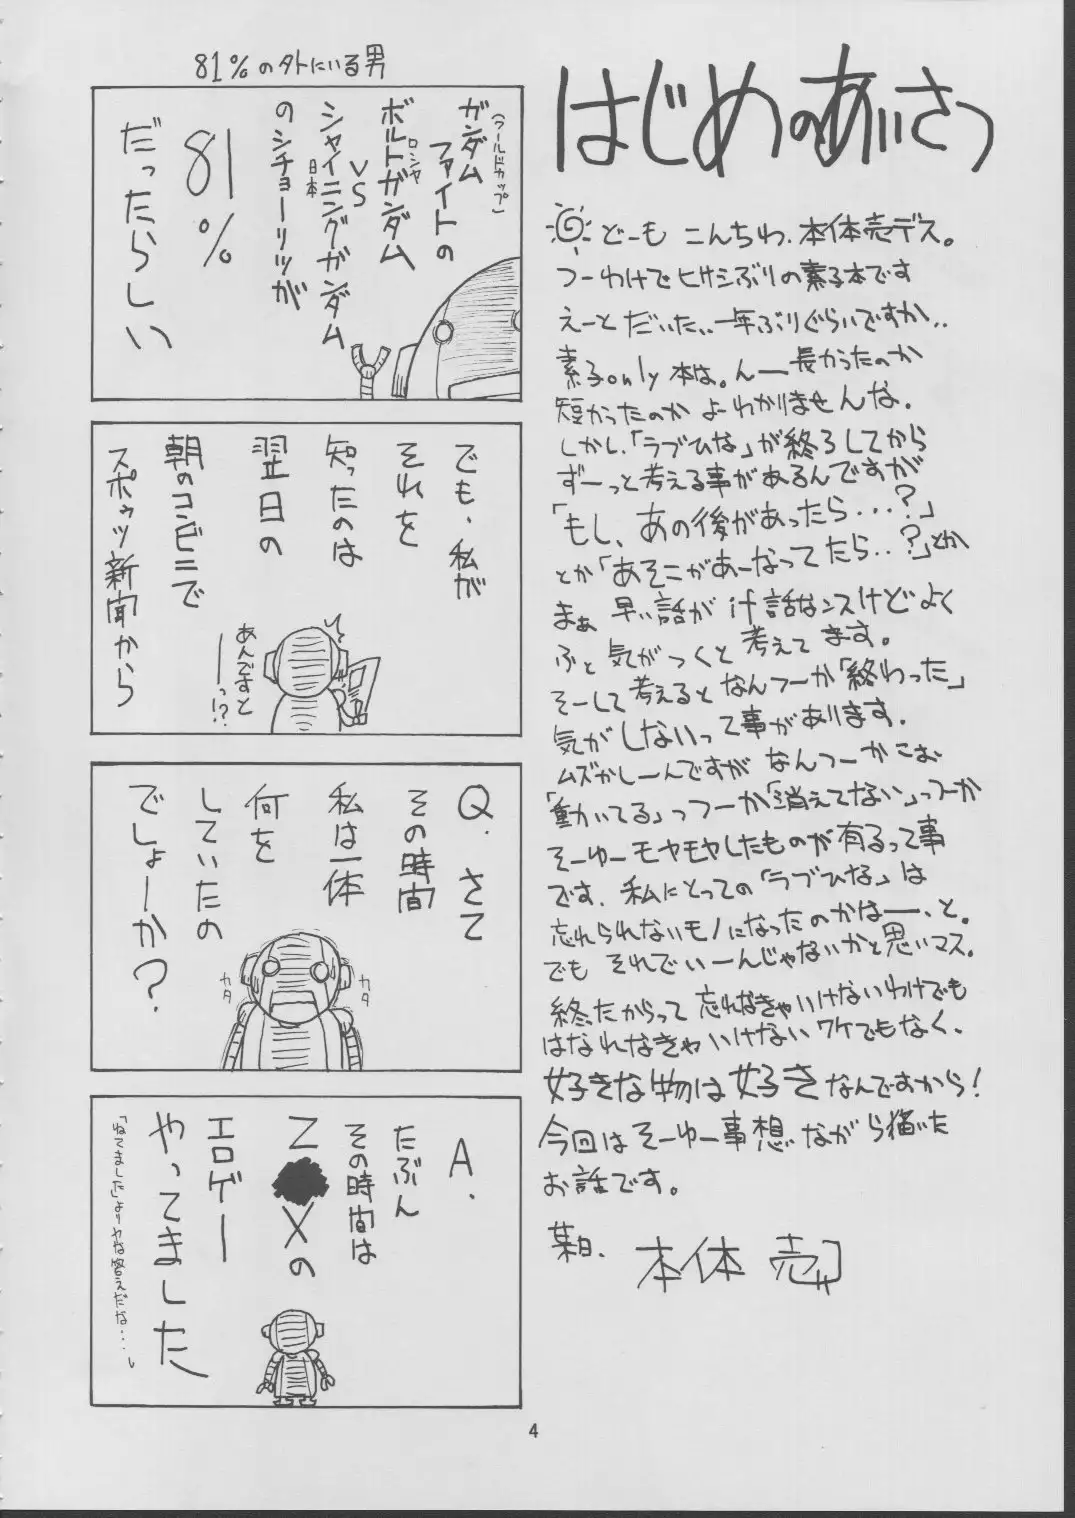 はじめのあいさつ
どーも こんちわ、本体売デス。
つーわけでヒサシぶりの素子本です
えーと だいたい、一年ぶりぐらいですか、、
素子only本は。んー長かったのか
短かったのか よーわかりませんな。
しかし、「ラブひな」が終了してから
ずーっと考える事があるんですが
「もし、あの後があったら・・・?」
とか「あそこがあーなってたら・・?」とか
まぁ 早い話が if話なンスけどよく
ふと気がつくと考えてます。
そーして考えるとなんつーか「終わった」
気がしないって事があります。
ムズかしーんですが なんつーか こお
「動いてる」っつーか「消えてない」っつーか
そーゆーモヤモヤしたものが有るって事
です。私にとっての「ラブひな」は
忘れられないモノになったのかはー、と。
でも それでいーんじゃないかと思いマス。
終ったからって 忘れなきゃいけないわけでも
はなれなきゃいけないワケでもなく、
好きな物は好きなんですから!
今回はそーゆー事想いながら描いた
お話です。
某日、 本体 売
81%の外にいる男
(ワールドカップ)
ガンダム
ファイトの
ロシヤ
ボルトガンダム
VS
日本
シャイニングガンダム
のシチョーリツが
81%
だったらしい
でも、私が
それを
知ったのは
翌日の
朝のコンビニで
スポゥツ新聞から
あんですと
ーっ!?
Q.さて
その時間
私は一体
何を
していたの
でしょーか?
カタ
カタ
A.
たぶん
その時間は
Z
Xの
エロゲー
やってました
「ねてました」よりヤな答えだな・・・し
4